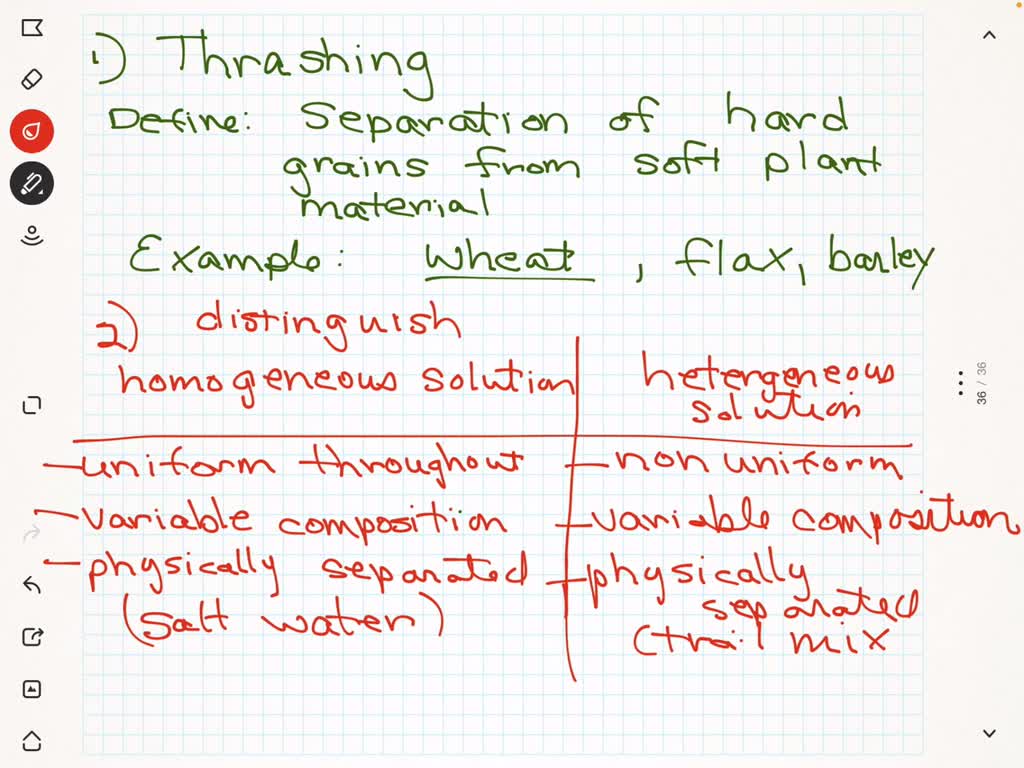 1) Thrashing
Define: Separation of hard
grains from soft plant
material
Example: wheat, flax, barley
2) distinguish
homogeneous solution
hetergeneous
solution
-uniform throughout
-variable composition
-physically separated
(Salt water)
-non uniform
-variable composition
-physically
separated
(trail mix
36 / 36